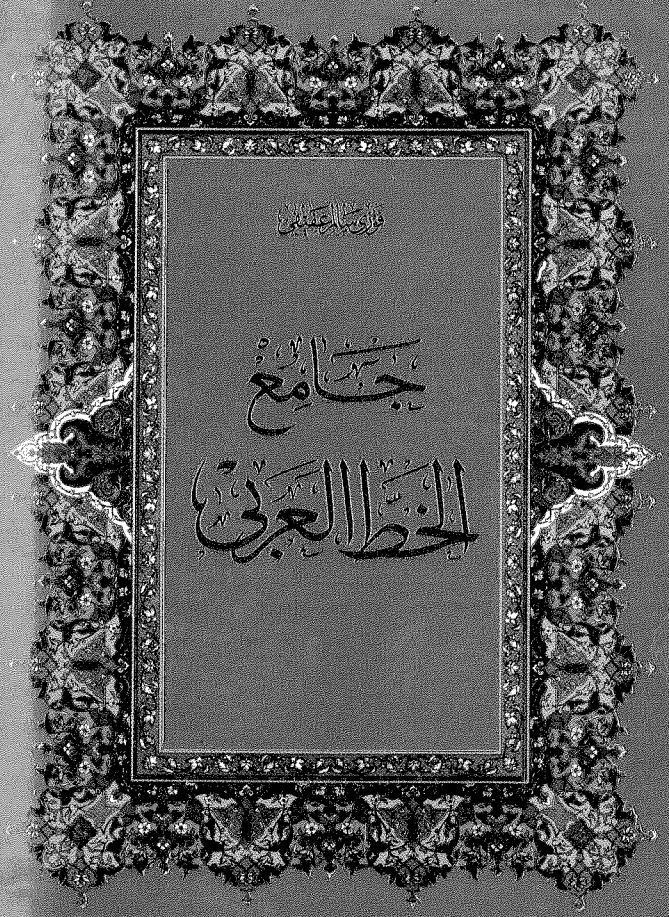 فوزي سالم عفيفي
جامع
الخط العربي